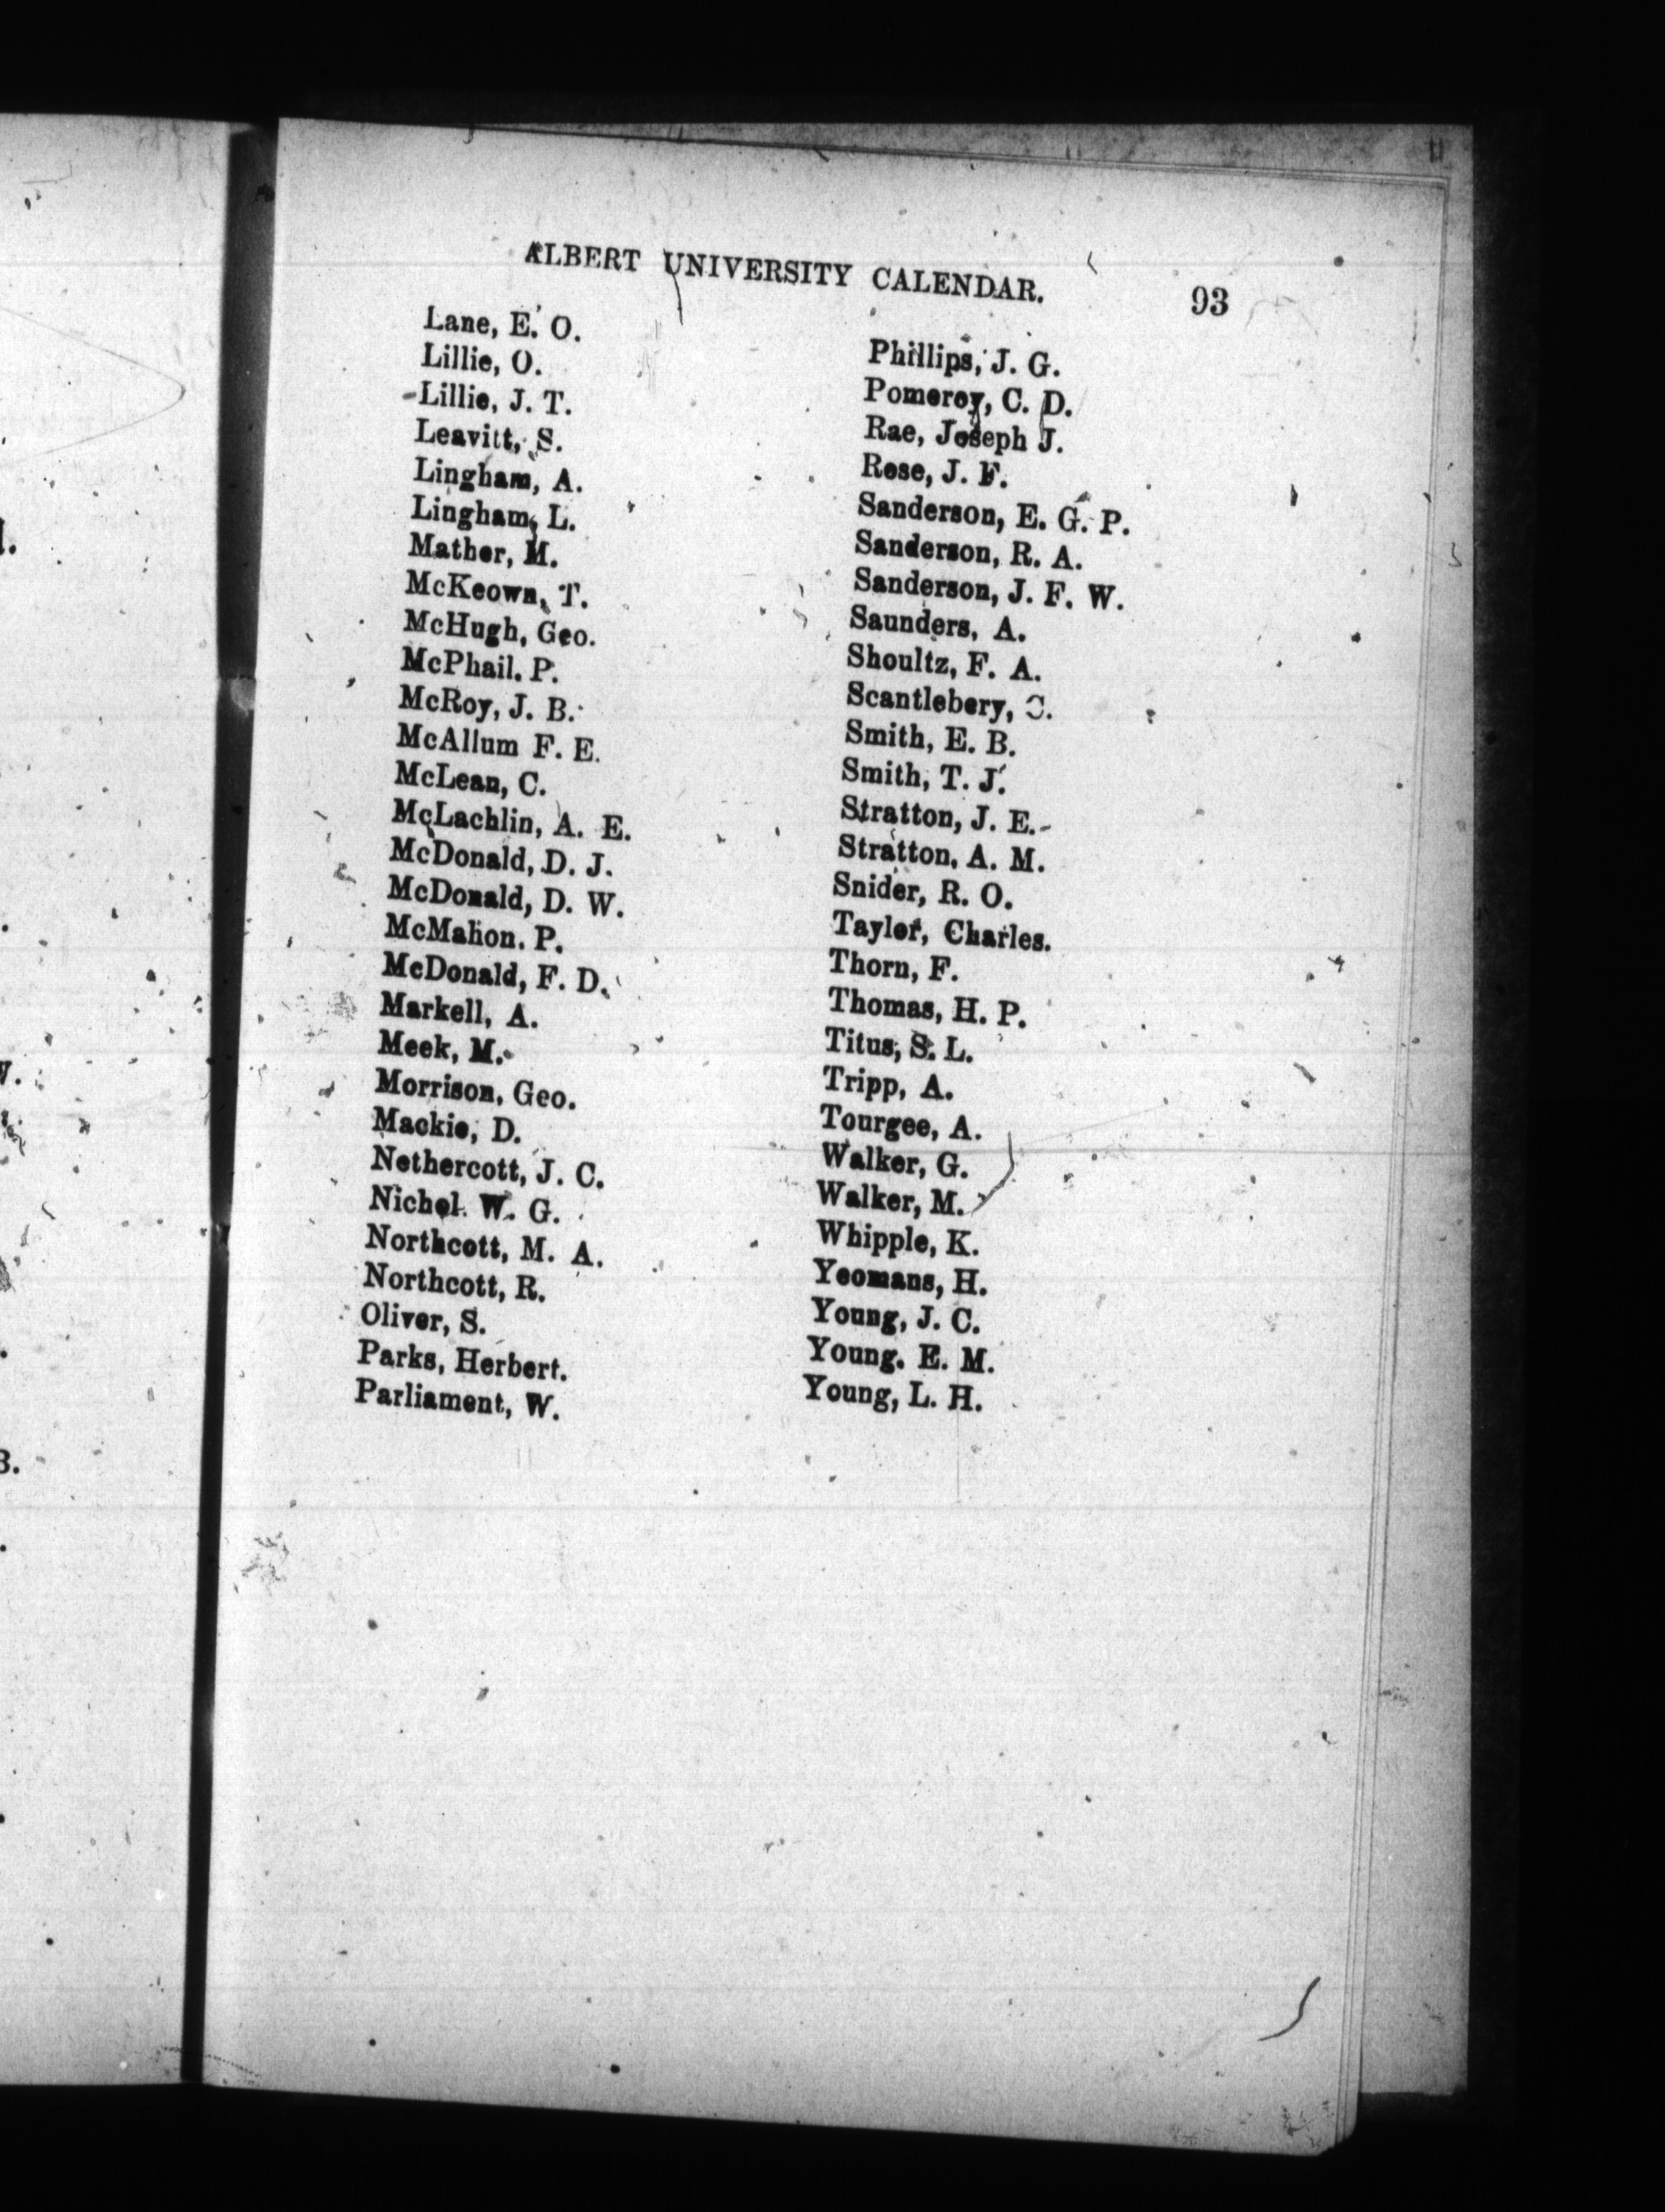 ALBERT UNIVERSITY CALENDAR. 93
Lane, E. O.
Lillie, O.
Lillie, J. T.
Leavitt, S.
Lingham, A.
Lingham, L.
Mather, M.
McKeown, T.
McHugh, Geo.
McPhail. P.
McRoy, J. B.
McAllum F. E.
McLean, C.
McLachlin, A. E.
McDonald, D. J.
McDonald, D. W.
McMahon. P.
McDonald, F. D.
Markell, A.
Meek, M.
Morrison, Geo.
Mackie, D.
Nethercott, J. C.
Nichol. W. G.
Northcott, M. A.
Northcott, R.
Oliver, S.
Parks, Herbert.
Parliament, W.
Phillips, J. G.
Pomeroy, C. D.
Rae, Joseph J.
Rose, J. F.
Sanderson, E. G. P.
Sanderson, R. A.
Sanderson, J. F. W.
Saunders, A.
Shoultz, F. A.
Scantlebery, C.
Smith, E. B.
Smith, T. J.
Stratton, J. E.
Stratton, A. M.
Snider, R. O.
Taylor, Charles.
Thorn, F.
Thomas, H. P.
Titus, S. L.
Tripp, A.
Tourgee, A.
Walker, G.
Walker, M.
Whipple, K.
Yeomans, H.
Young, J. C.
Young. E. M.
Young, L. H.